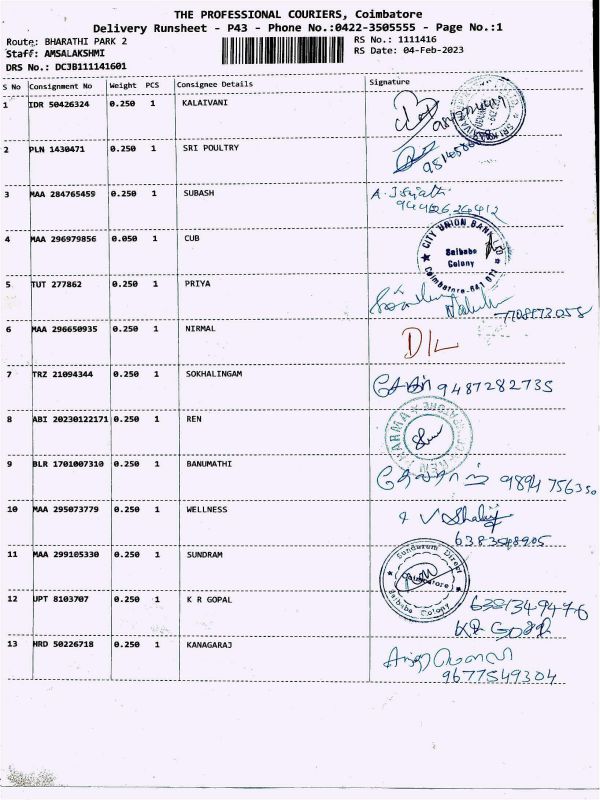 THE PROFESSIONAL COURIERS, Coimbatore
Delivery Runsheet - P43 - Phone No.:0422-3505555 - Page No.:1
Route: BHARATHI PARK 2
RS No.: 1111416
Staff: AMSALAKSHMI
RS Date: 04-Feb-2023
DRS No.: DC3B111141601
S No Consignment No Weight PCS Consignee Details Signature
1 IDR 50426324 0.250 1 KALAIVANI
2 PLN 1430471 0.250 1 SRI POULTRY
3 MAA 284765459 0.250 1 SUBASH
4 MAA 296979856 0.050 1 CUB
CITY UNION BANK LTD
Saibaba
Colony
Coimbatore-641 011
5 TUT 277862 0.250 1 PRIYA
7708173058
6 MAA 296650935 0.250 1 NIRMAL
D/L
7 TRZ 21094344 0.250 1 SOKHALINGAM
9487282735
8 ABI 20230122171 0.250 1 REN
9 BLR 1701007310 0.250 1 BANUMATHI
9894 756350
10 MAA 295073779 0.250 1 WELLNESS
6383548905
11 MAA 299105330 0.250 1 SUNDRAM
Sundaram Direct
Coimbatore
Saibaba Colony
12 UPT 8103707 0.250 1 K R GOPAL
6381349476
KR GOPAL
13 HRD 50226718 0.250 1 KANAGARAJ
9677549304